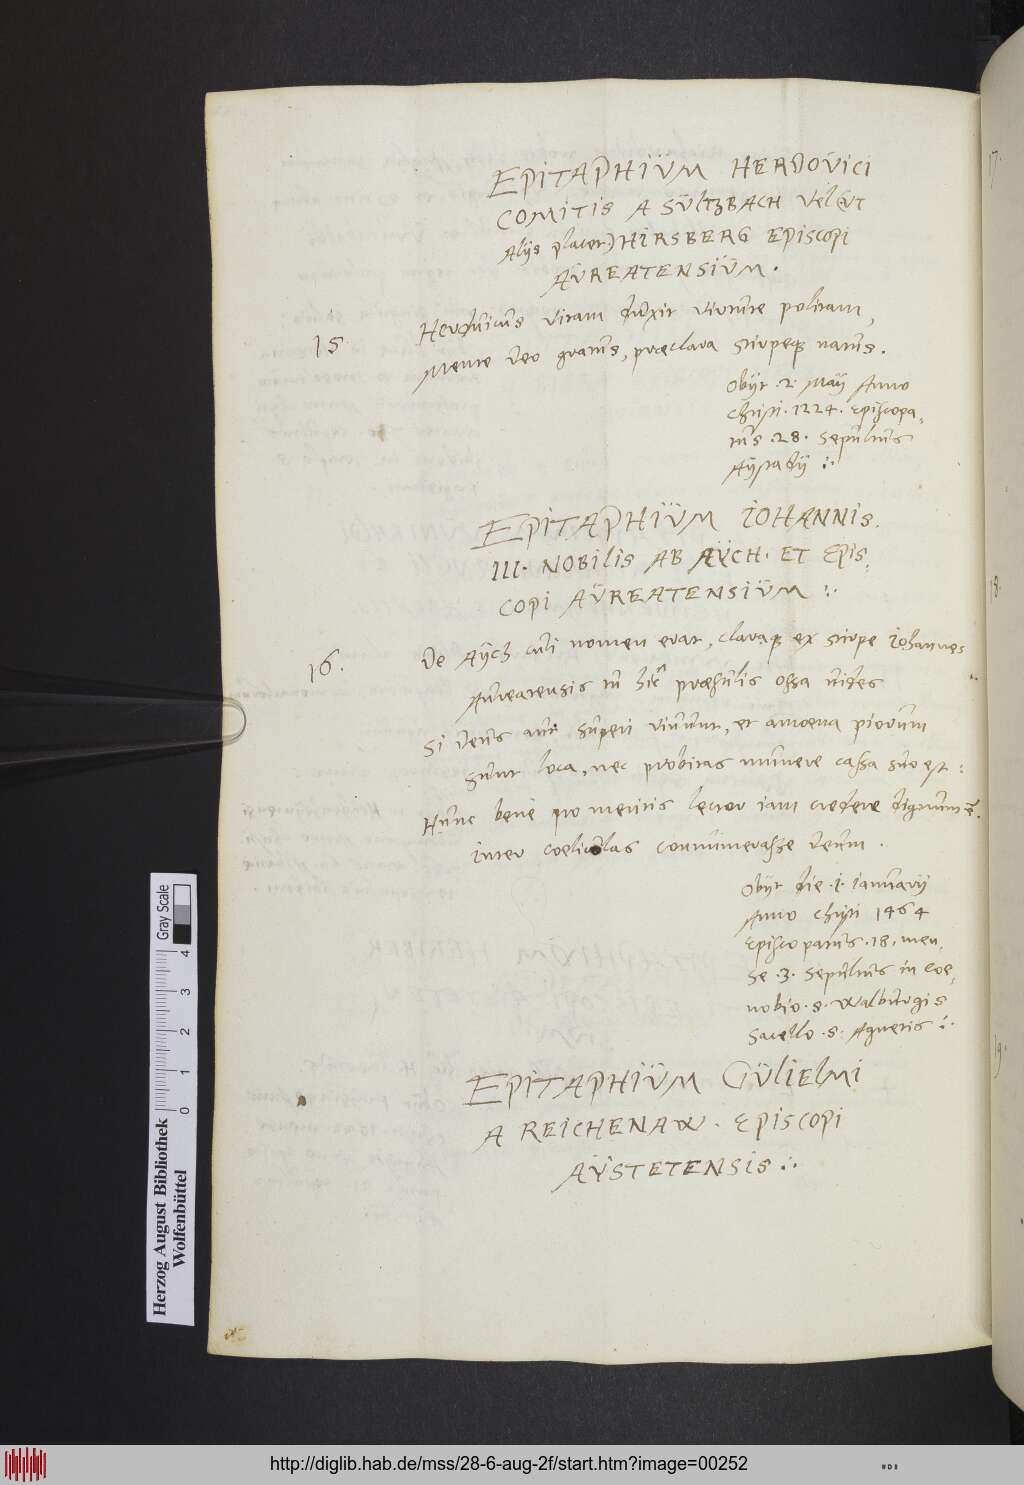 EPITAPHIÜM HERDÖVICI
COMITIS A SÜLTZBACH VEL (VT
Alÿs placet) HIRSBERG EPISCOPI
AÜREATENSIÜM.
15 Herduicus vitam duxit virtute politam,
Mente deo gratus, præclara stirpeq natus.
Obÿt .2. Maÿ Anno
Christi .1224. Episcopa-
tus .28. Sepultus
Aÿstadÿ
EPITAPHIÜM IOHANNIS.
III. NOBILIS AB AÿCH. ET EPIS-
COPI AÜREATENSIÜM
16. De Aÿch cui nomen erat, claraq ex stirpe Iohannes
Aureatensis in hic præsulis ossa vides
Si deus aut superi viuunt, et amoena piorum
Sunt loca, nec probitas munere cassa suo est:
Hunc bene pro meritis lector iam credere dignum ē.
Inter coelicolas connumerasse deum.
Obÿt die .1. Ianuarÿ
Anno Christi 1464
Episcopatus .18. men-
se .3. Sepultus in Coe-
nobio .S. Walburgis
Sacello .S. Agnetis
EPITAPHIÜM GÜLIELMI
A REICHENAW. EPISCOPI
AÿSTETENSIS
17.
18.
19.
Gray Scale
0 1 2 3 4
Herzog August Bibliothek
Wolfenbüttel
http://diglib.hab.de/mss/28-6-aug-2f/start.htm?image=00252